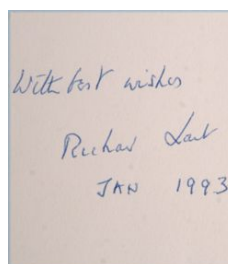 With best wishes
Richard
JAN 1993